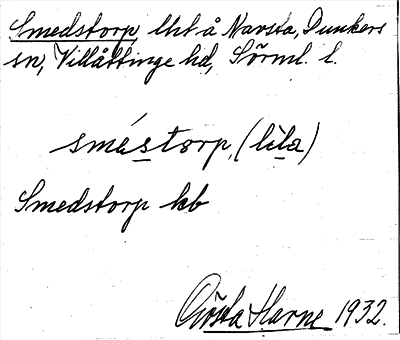 Smedstorp, lht å Navsta, Dunkers
sn, Villåttinge hd, Sörml. l.
smé̱storp, (lila)
Smedstorp kb
Gösta Harne 1932.